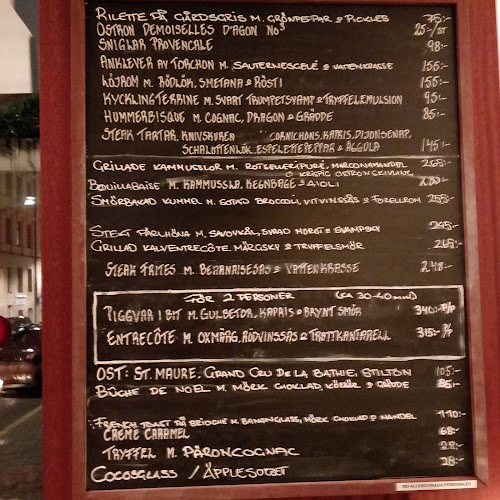 RILETTE PÅ GÅRDSGRIS M. GRÖNPEPPAR & PICKLES 75:-
OSTRON DEMOISELLES D'AGON NO3 25:-/ST
SNIGLAR PROVENCALE 98:-
ANKLEVER AV TORCHON M. SAUTERNESGELÉ & VATTENKRASSE 155:-
LÖJROM M. RÖDLÖK, SMETANA & RÖSTI 155:-
KYCKLINGTERRINE M. SVART TRUMPETSVAMP & TRYFFELEMULSION 95:-
HUMMERBISQUE M. COGNAC, DRAGON & GRÄDDE 85:-
STEAK TARTAR, KNIVSKUREN CORNICHONS, KAPRIS, DIJONSENAP,
SCHALOTTENLÖK, ESPELETTEPEPPAR & ÄGGULA 145:-
GRILLADE KAMMUSSLOR M. ROTSELLERIPURÉ, MARCONAMANDEL
& KRISPIG OSTRONSKIVLING
BOUILLABAISE M. KAMMUSSLA, & 
SMÖRBAKAD KUMMEL M. BROCCOLI, VITVINSSÅS & FORELLROM 255:-
STEKT PÄRLHÖNA M. SAVOYKÅL, SVAMPSKY 245:-
GRILLAD KALVENTRECÔTE, MÄRGSKY & TRYFFELSMÖR 265:-
STEAK FRITES M. BEARNAISESÅS & VATTENKRASSE 248:-
FÖR 2 PERSONER (CA 30-40 MIN)
PIGGVAR I BIT M. GULBETOR, KAPRIS & BRYNT SMÖR 340:-P/P
ENTRECÔTE M. OXMÄRG, RÖDVINSSÅS & TRATTKANTARELL 315:-
OST: ST. MAURE, GRAND CRU DE LA BATHIE, STILTON 105:-
BÛCHE DE NOEL M. MÖRK CHOKLAD, & GRÄDDE 85:-
FRENCH TOAST PÅ BRIOCHE M. BANANGLASS, MÖRK CHOKLAD & MANDEL 110:-
CRÈME CARAMEL 68:-
TRYFFEL M. PÄRONCOGNAC 28:-
COCOSGLASS / ÄPPLESORBET 28:-
VID ALLERGI FRÅGA PERSONALEN